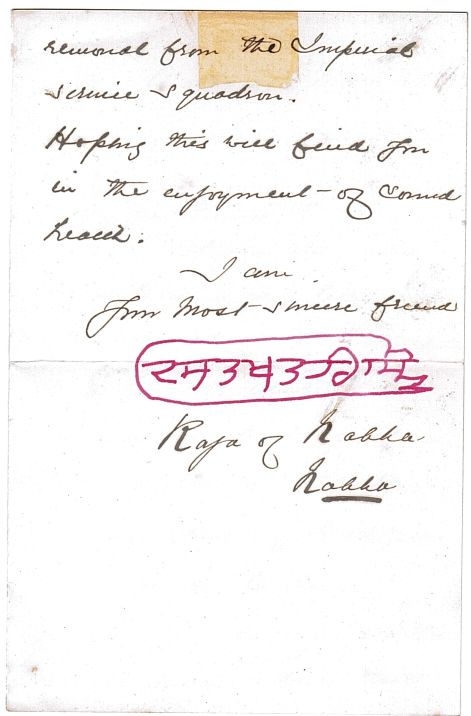 removal from the Imperial
Service Squadron.
Hoping this will find you
in the enjoyment of sound
health.
I am
Your most sincere friend
ਦਸਤਖਤ
Raja of Nabha
Nabha